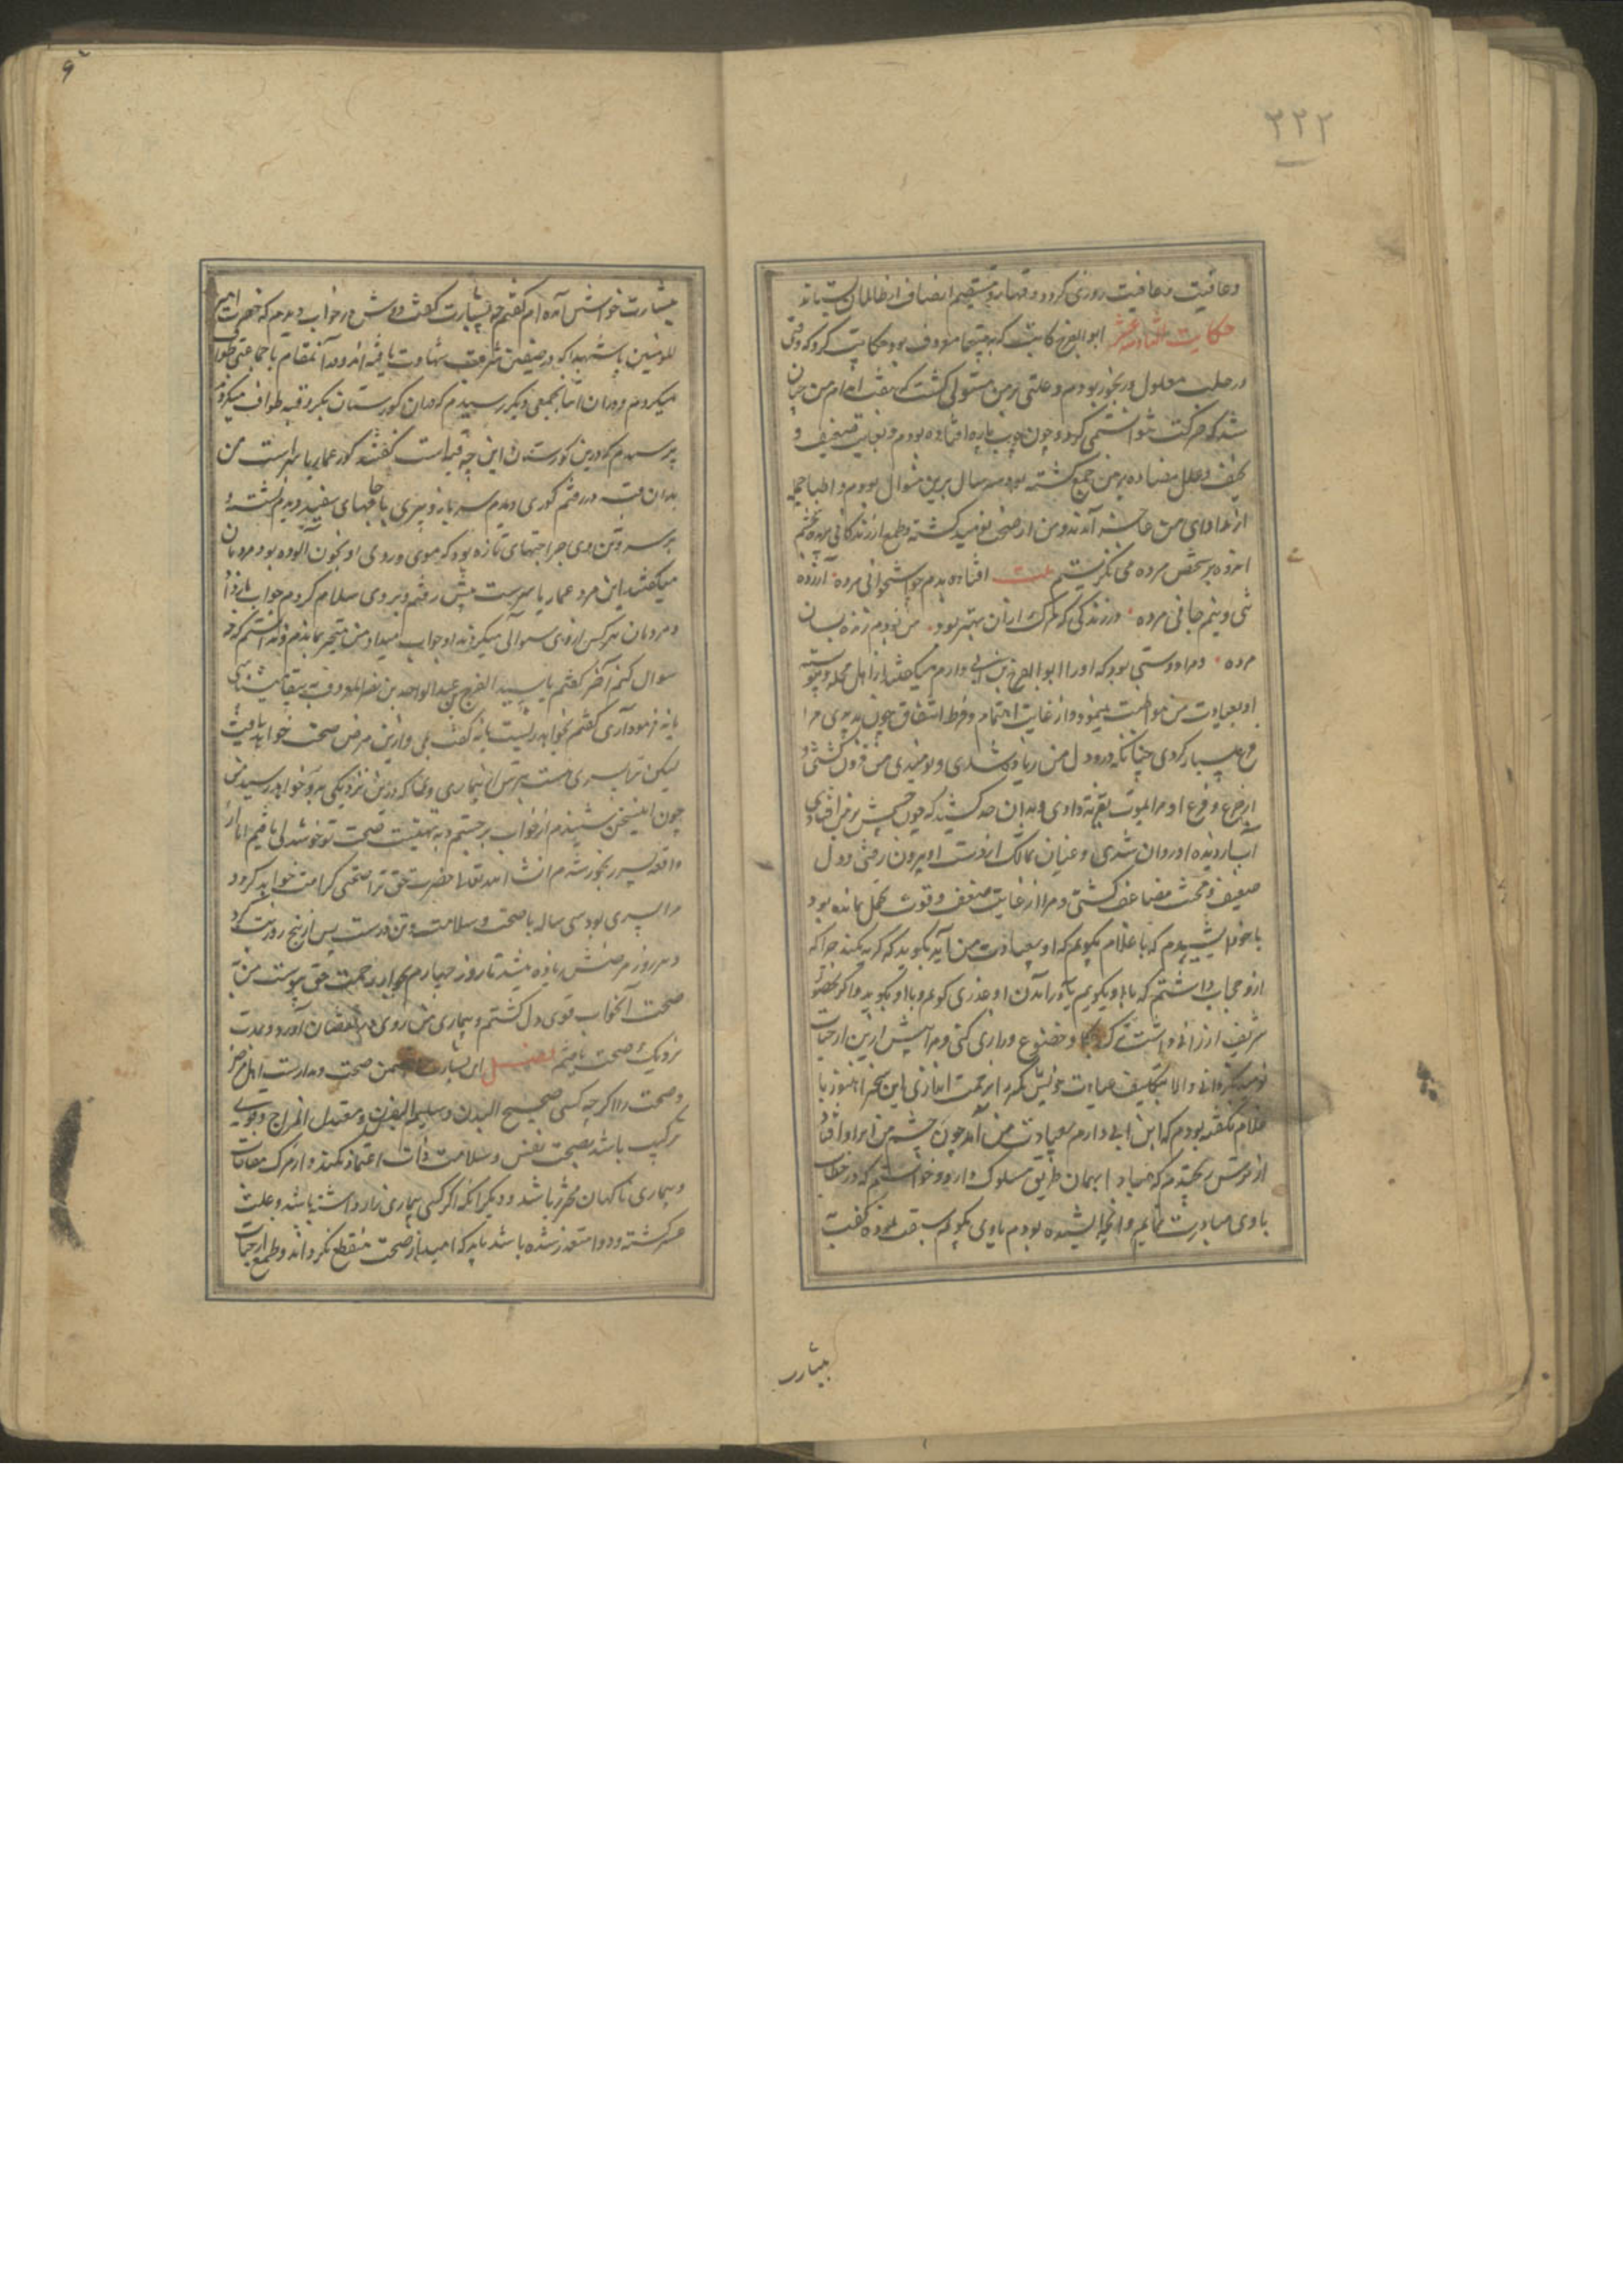 ۲۲۲
وعاقبت و عافیت روزی کردد و قهار و منتقم انصاف از ظالمان بستاند
حکایت ابو الفرج کاتب که ببغا معروف بود حکایت کرد که وقتی
در حلب معلول و رنجور بودم و علتی بر من مستولی کشت که هفت اندام من چنان
شد که حرکت نتوانستمی کرد و چون چوب پاره افتاده بودم و بغایت ضعیف و
نحیف و علل متضاده بر من جمع کشته بود و سه سال برین منوال بودم و اطبا جمله
از مداوای من عاجز آمدند و من از صحت نومید کشته و طمع از زندکانی بریده بچشم
اندوه بر شخص مرده می نکریستم بیت افتاده بدم چو استخوانی مرده آزرده
تنی و نیم جانی مرده در زندکی که مرک ازان بهتر بود من بودم زنده بسان
مرده و مرا دوستی بود که او را ابو الفرج بن ابی دارم میکفتند از اهل محله و پیوسته
او بعیادت من مواظبت مینمود و از غایت اهتمام و فرط اشفاق چون بدیدی مرا
جزع بسیار کردی چنانکه درد دل من زیاده شدی و نومیدی من فزون کشتی و
از جزع و فزع او مرا بموت تعزیه دادی و بدان حد کشید که چون چشمش بر من افتادی
آب از دیده او روان شدی و عنان تمالک از دست او بیرون رفتی و دل
ضعیف و محنت مضاعف کشتی و مرا از غایت ضعف و قوت تحمل نمانده بود
با خود اندیشیدم که با غلام بکویم که او بعیادت من آید بکوید که کریه نکند چرا که
ازو حجاب داشتم که با او بکویم یا در آمدن او عذری کویم و با او بکوید و اکر بحضور
شریف ارزانی داشت ترک بکا و خضوع و زاری کنی و مرا بیش ازین از حیات
نومید نکردانی و الا بتکلیف عیادت خویش مرا بزحمت اندازی این سخن را هنوز با
غلام نکفته بودم که ابن ابی دارم بعیادت من آمد چون چشم من بر او افتاد
از ترس بر طپیدم که مبادا بهمان طریق مسلوک دارد و خواستم که در خطاب
با وی مبادرت نمایم و انچه اندیشیده بودم با وی بکویم سبقت نموده کفت
ببشارت
ببشارت خواستن آمده ام کفتم چه بشارت کفت دوش در خواب دیدم که حضرت امیر
المومنین با شهدا که در صفین شرف شهادت یافته اند و در آنمقام با جماعتی طواف
میکردم و دران اثنا بجمعی دیکر رسیدم که دران کورستان بکرد قبه طواف میکردند
پرسیدم که درین کورستان این چه قبه است کفتند کور عمار یاسر است من
بدان قبه در رفتم کوری دیدم سر باز و پیری با جامهای سفید دیدم نشسته و
بر سر و تن وی جراحتهای تازه بود که موی و روی او بخون آلوده بود مردمان
میکفتند این مرد عمار یاسر است پیش رفتم و بر وی سلام کردم جواب باز داد
و مردمان هر کس ازوی سوالی میکردند او جواب میداد من متحیر بماندم و ندانستم که چه
سوال کنم آخر کفتم یا سیدی ابو الفرج عبد الواحد بن نصر المعروف به ببغا میشناسی
یا نه فرمود آری کفتم بخواهد زیست یا نه کفت بلی و ازین مرض صحت خواهد یافت
لیکن ترا پسری هست بترس از بیماری و هلاک که درین نزدیکی بدو خواهد رسید من
چون این سخن شنیدم از خواب برجستم و به تهنیت صحت تو خوشدلی یافتم اما از
واقعه پسر رنجور شدم ان شا الله تعالی حضرت حق ترا صحتی کرامت خواهد کرد و
مرا پسری بود سی ساله با صحت و سلامت و تن درست پس از پنج روز تب کرد
و هر روز مرضش زیاده میشد تا روز چهارم بجوار رحمت حق پیوست من به
صحت آنخواب قوی دل کشتم و بیماری من روی در نقصان آورد و بمدت
نزدیک صحت یافتم فصل این بشارت متضمن صحت و مداراست اهل مرض
و صحت را اکر چه کسی صحیح البدن و سلیم النفس و معتدل المزاج و قوی
ترکیب باشد بصحت نفس و سلامت ذات اعتماد نکند و از مرک مفاجات
و بیماری ناکهان محترز باشد و دیکر انکه اکر کسی بیماری زار داشته باشد و علت
عسر کشته و دوا متعذر شده باشد باید که امید از صحت منقطع نکرداند و طمع از حیات